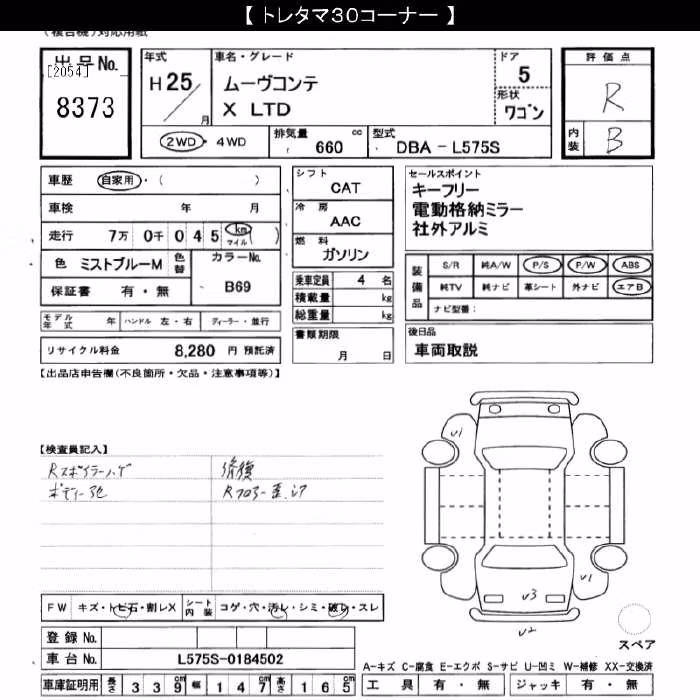 【 トレタマ30コーナー 】
(複合機)対応用紙
出品No.
[2054]
8373
年式
H25/月
車名・グレード
ムーヴコンテ
X LTD
ドア
5
形状
ワゴン
評価点
R
内装
B
2WD・4WD
排気量 660 cc
型式 DBA - L575S
車歴 自家用・( )
車検 年 月
走行 7万 0千 0 4 5 km マイル ( )
色 ミストブルーM 色替
カラーNo.
B69
保証書 有・無
モデル年式 年 ハンドル 左・右 ディーラー・並行
リサイクル料金 8,280 円 預託済
シフト
CAT
冷房
AAC
燃料
ガソリン
乗車定員 4 名
積載量 kg
総重量 kg
書類期限
月 日
セールスポイント
キーフリー
電動格納ミラー
社外アルミ
装備品
S/R 純A/W P/S P/W ABS
純TV 純ナビ 革シート 外ナビ エアB
ナビ型番:
後日品
車両取説
【出品店申告欄(不良箇所・欠品・注意事項等)】
【検査員記入】
Rスポイラーハゲ
修復
ボディー色
Rフロアー歪、凹
U1
U1
U3
U2
スペア
FW キズ・トビ石・割レX
シート内装 コゲ・穴・汚レ・シミ・破レ・スレ
登録No.
車台No. L575S-0184502
車庫証明用 長さ 3 3 9 cm 幅 1 4 7 cm 高さ 1 6 5 cm
A-キズ C-腐食 E-エクボ S-サビ U-凹ミ W-補修 XX-交換済
工具 有・無 ジャッキ 有・無